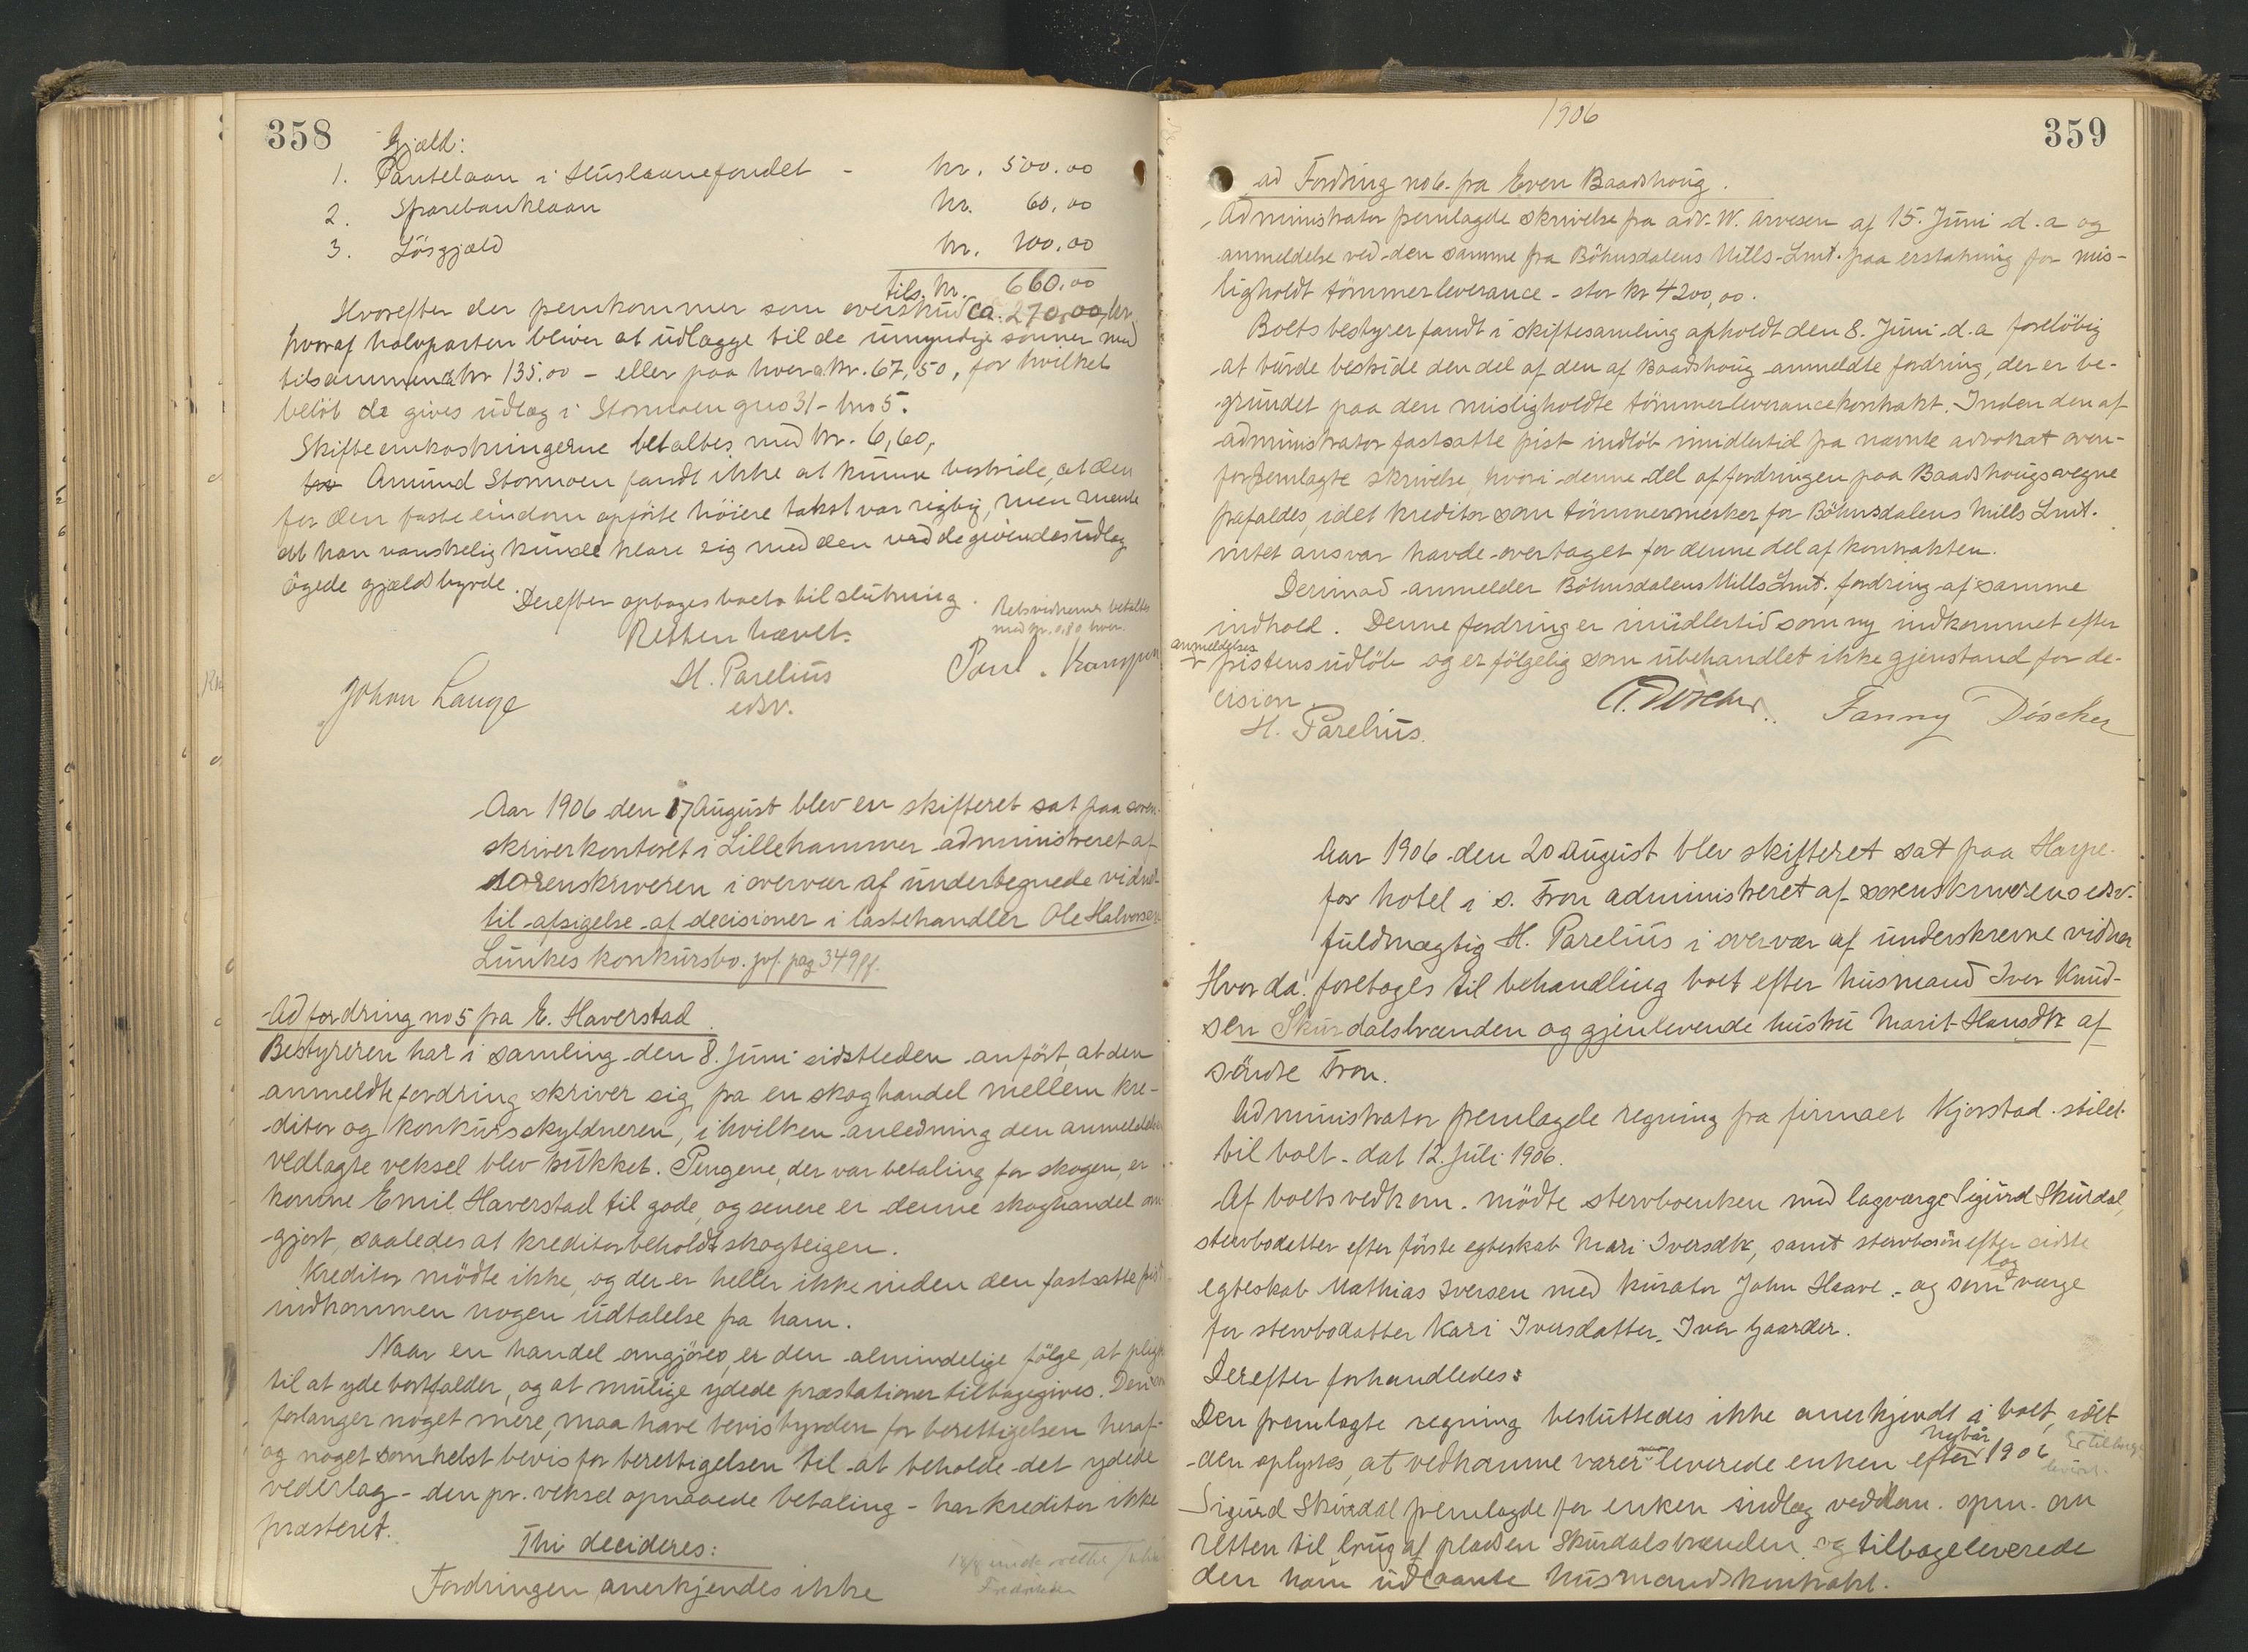 358
Gjæld:
1. Pantelaan i Huslaanefondet - kr. 500.00
2. Sparebanklaan kr. 60,00
3. Lösgjæld kr. 100,00
tils. kr. 660,00
Hvorefter der fremkommer som overskud ca. 270,00, kr.
hvoraf halvparten bliver at udlægge til de umyndige sønner med
tilsammen a kr 135.00 - eller paa hver a kr. 67,50, for hvilket
beløb da gives udlæg i Stormoen gno 31 - bno 5.
Skifteomkostningerne betaltes med kr. 6,60,
Amund Stormoen fandt ikke at kunne bestride, at den
for den faste eindom opførte höiere takst var rigtig, men mente
at han vanskelig kunde klare sig med den ved de givendes udlæg
ögede gjældsbyrde.
Derefter optages boet til slutning.
Retsvidnerne betaltes
med kr. 0,80 hver.
Retten hævet.
Johan Lange H. Parelius Paul Kampen
edsv.
Aar 1906 den 17 August blev en skifteret sat paa soren-
skriverkontoret i Lillehammer administreret af
sorenskriveren i overvær af undertegnede vidner
til afsigelse af decisioner i lastehandler Ole Halvorsen
Lunkes konkursbo. jvf. pag 349 ff.
Ad fordring no 5 fra E. Haverstad.
Bestyreren har i samling den 8. Juni sidstleden anført, at den
anmeldte fordring skriver sig fra en skoghandel mellem kre-
ditor og konkursskyldneren, i hvilken anledning den anmeldelsen
vedlagte veksel blev trukket. Pengene, der var betaling for skogen, er
komne Emil Haverstad til gode, og senere er denne skoghandel om-
gjort, saaledes at kreditor beholdt skogteigen.
Kreditor mödte ikke, og der er heller ikke inden den fastsatte frist
indkommen nogen udtalelse fra ham.
Naar en handel omgjöres, er den almindelige fölge, at pligt
til at yde bortfalder, og at mulige ydede præstationer tilbagegives. Den som
forlanger noget mere, maa have bevisbyrden for berettigelsen heraf-
og noget somhelst bevis for berettigelsen til at beholde det ydede
vederlag - den pr. veksel opnaaede betaling - har kreditor ikke
præsteret.
Thi decideres:
Fordringen anerkjendes ikke
1906
359
ad Fordring no 6. fra Even Baadshaug.
Administrator fremlagde skrivelse fra adv. W. Arvesen af 15. Juni d.a og
anmeldelse ved den samme fra Böhnsdalens Mills Lmt. paa erstatning for mis-
ligholdt tömmerleverance - stor kr 4200,00.
Boets bestyrer fandt i skiftesamling opholdt den 8. Juni d.a forelöbig
at burde bestride den del af den af Baadshaug anmeldte fordring, der er be-
grundet paa den misligholdte tömmerleverancekontrakt. Inden den af
administrator fastsatte frist indløb imidlertid fra nævnte advokat oven-
for fremlagte skrivelse, hvori denne del af fordringen paa Baadshaugs vegne
frafaldes, idet kreditor som tömmermerker for Böhnsdalens Mills Lmt.
intet ansvar havde overtaget for denne del af kontrakten.
Derimod anmelder Böhnsdalens Mills Lmt. fordring af samme
indhold. Denne fordring er imidlertid som ny indkommet efter
anmeldelses
fristens udlöb og er fölgelig som ubehandlet ikke gjenstand for de-
cision.
H. Parelius. Fanny Döscher
Aar 1906 den 20 August blev skifteret sat paa Harpe-
for hotel i s. Fron administreret af sorenskriverens edsv.
fuldmægtig H. Parelius i overvær af underskrevne vidner
Hvor da: foretoges til behandling boet efter husmand Iver Knud-
sen Skurdalsbrænden og gjenlevende hustru Marit Hansdtr af
söndre Fron.
Administrator fremlagde regning fra firmaet Kjorstad stilet
til boet - dat 12. Juli 1906.
Af boets vedkom. mödte stervboenken med lagværge Sigurd Skurdal,
stervbodetter efter förste egteskab Mari Iversdtr, samt stervbosön efter sidste
egteskab Mathias Iversen med kurator John Haave - og som
værge
for stervbodatter Kari Iversdatter, Iver Gaarder.
Derefter forhandledes:
Den fremlagte regning besluttedes ikke anerkjendt i boet, idet
den oplystes, at vedkomne varer var leverede enken efter nytaar 1906
Sigurd Skurdal fremlagde for enken indlæg vedkom. spm. om
retten til brug af pladsen Skurdalsbrænden og tilbageleverede
den ham udlaante husmandskontrakt.